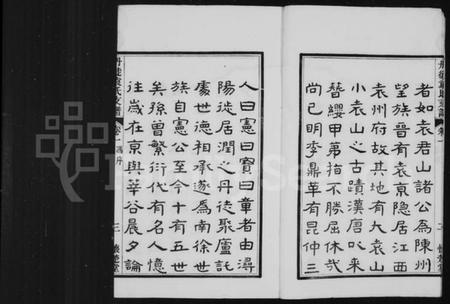 者如袁君山諸公為陳州
望族晉有袁京隱居江西
袁州府故其地有大袁山
小袁山之古蹟漢唐以来
簪纓甲第指不勝屈休哉
尚已明季鼎革有昆仲三
人曰憲曰寶曰章者由潯
陽徙居潤之丹徒聚廬託
處世德相承遂為南徐世
族自憲公至今十有五世
矣孫曾繁衍代有名人憶
往歲在京與華谷晨夕論